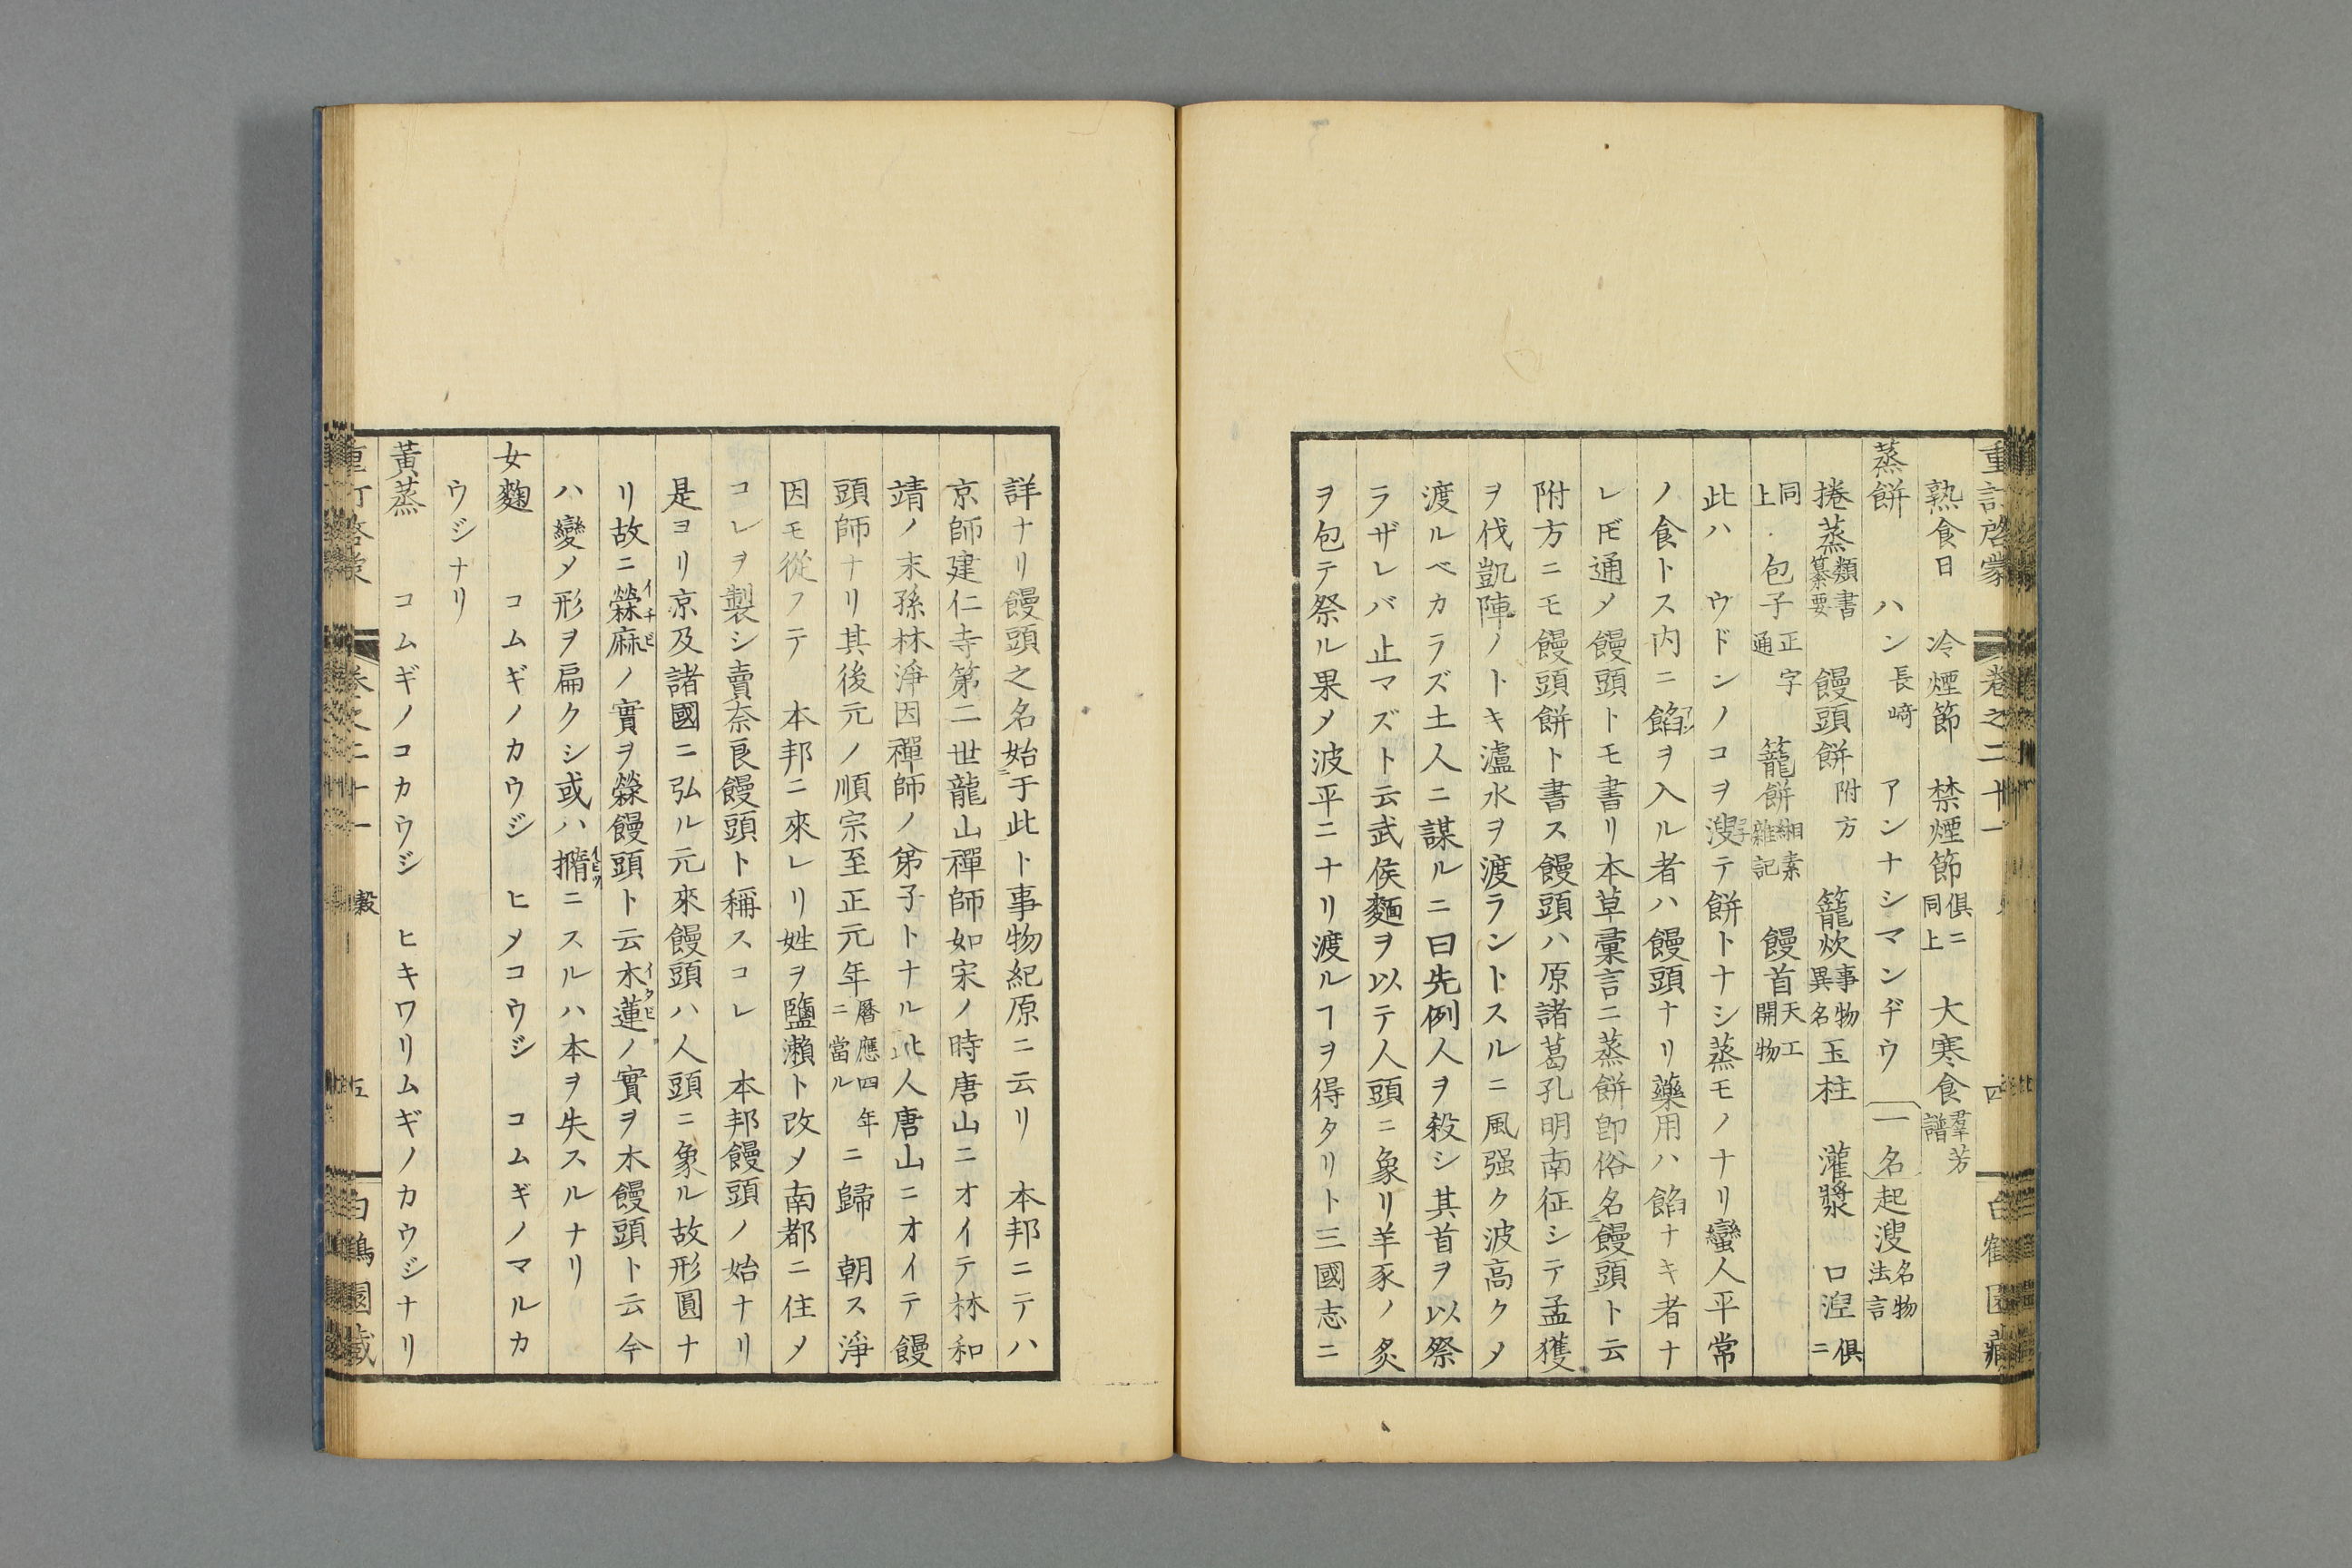 重訂啓蒙 卷之二十一 四 白鶴園藏
熟食日 冷煙節 禁煙節俱ニ同上 大寒食羣芳譜
蒸餅 ハン長崎 アンナシマンヂウ 一名起溲名物法言
捲蒸類書纂要 饅頭餅附方 籠炊事物異名 玉柱 灌漿 口湼俱ニ
同上 包子正字通 籠餅緗素雜記 饅首天工開物
此ハ ウドンノコヲ溲テ餅トナシ蒸モノナリ蠻人平常
ノ食トス内ニ餡ヲ入ル者ハ饅頭ナリ藥用ハ餡ナキ者ナ
レ𪜈通メ饅頭トモ書リ本草彙言ニ蒸餅卽俗名饅頭ト云
附方ニモ饅頭餅ト書ス饅頭ハ原諸葛孔明南征シテ孟獲
ヲ伐凱陣ノトキ瀘水ヲ渡ラントスルニ風强ク波高クメ
渡ルベカラズ土人ニ謀ルニ曰先例人ヲ殺シ其首ヲ以祭
ラザレバ止マズト云武侯麵ヲ以テ人頭ニ象リ羊豕ノ炙
ヲ包テ祭ル果メ波平ニナリ渡ルヿヲ得タリト三國志ニ
詳ナリ饅頭之名始于此ト事物紀原ニ云リ 本邦ニテハ
京師建仁寺第二世龍山禪師如宋ノ時唐山ニオイテ林和
靖ノ末孫林淨因禪師ノ弟子トナル此人唐山ニオイテ饅
頭師ナリ其後元ノ順宗至正元年曆應四年ニ當ル ニ歸 朝ス淨
因モ從フテ 本邦ニ來レリ姓ヲ鹽瀨ト改メ南都ニ住メ
コレヲ製シ賣奈良饅頭ト稱スコレ 本邦饅頭ノ始ナリ
是ヨリ京及諸國ニ弘ル元來饅頭ハ人頭ニ象ル故形圓ナ
リ故ニ檾麻イチビノ實ヲ檾饅頭ト云木蓮イタビノ實ヲ木饅頭ト云今
ハ變メ形ヲ扁クシ或ハ撱イビツニスルハ本ヲ失スルナリ
女麴 コムギノカウジ ヒメコウジ コムギノマルカ
ウジナリ
黃蒸 コムギノコカウジ ヒキワリムギノカウジナリ
重訂啓蒙 卷之二十一 穀 五 白鶴園藏